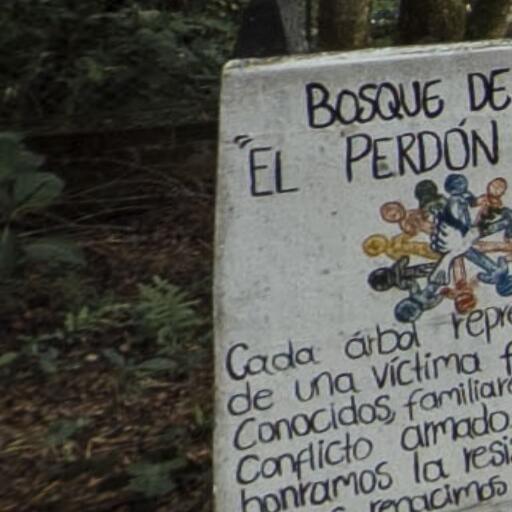 BOSQUE DE
"EL PERDÓN
Cada árbol repre
de una víctima f
Conocidos, familiar
Conflicto armado.
honramos la resi
renacimos